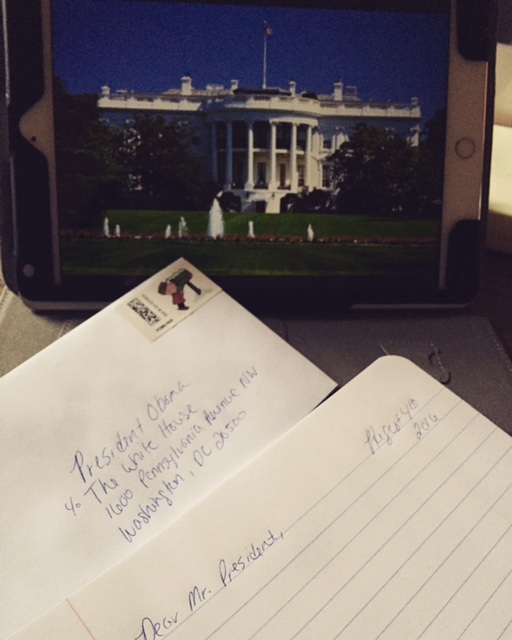 President Obama
c/o The White House
1600 Pennsylvania Avenue NW
Washington, DC 20500
August 4th
2016
Dear Mr. President,